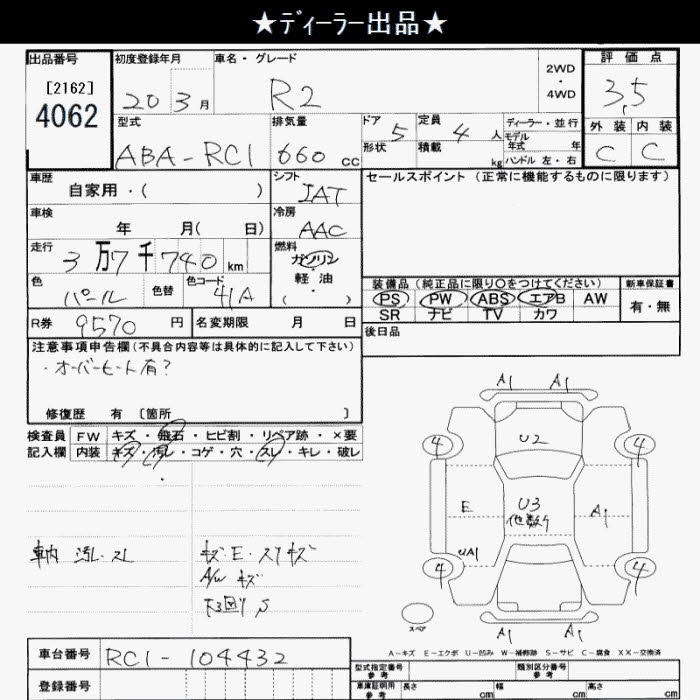 ★ディーラー出品★
出品番号
[2162]
4062
初度登録年月
20年3月
車名・グレード
R2
2WD
・
4WD
評価点
3.5
外装 内装
C C
型式
ABA-RC1
排気量
660 cc
ドア
形状
5
定員 4 人
積載 kg
ディーラー・並行
モデル
年式 年
ハンドル 左・右
車歴
自家用・( )
シフト
IAT
セールスポイント (正常に機能するものに限ります)
車検
年 月( 日)
冷房
AAC
走行
3万7千740km
燃料
ガソリン
軽油
( )
色
パール
色替
色コード
41A
装備品(純正品に限り○をつけてください)
PS PW ABS エアB AW
SR ナビ TV カワ
新車保証書
有・無
R券 9570円
名変期限 月 日
後日品
注意事項申告欄(不具合内容等は具体的に記入して下さい)
・オーバーヒート有?
修復歴 有 [箇所 ]
検査員
記入欄
FW キズ・飛石・ヒビ割・リペア跡・×要
内装 キズ・汚レ・コゲ・穴・スレ・キレ・破レ
車内 汚レ・スレ
キズ・E・スリキズ
A/W キズ
下回り S
A1 A1
4 U2 4
E U3 A1
他数ケ
UA1
4 4
スペア
A1 A1
A-キズ E-エクボ U-凹み W-補修跡 S-サビ C-腐食 XX-交換済
車台番号 RC1-104432
登録番号
型式指定番号
参考
類別区分番号
参考
車庫証明用
参考
長さ cm 幅 cm 高さ cm